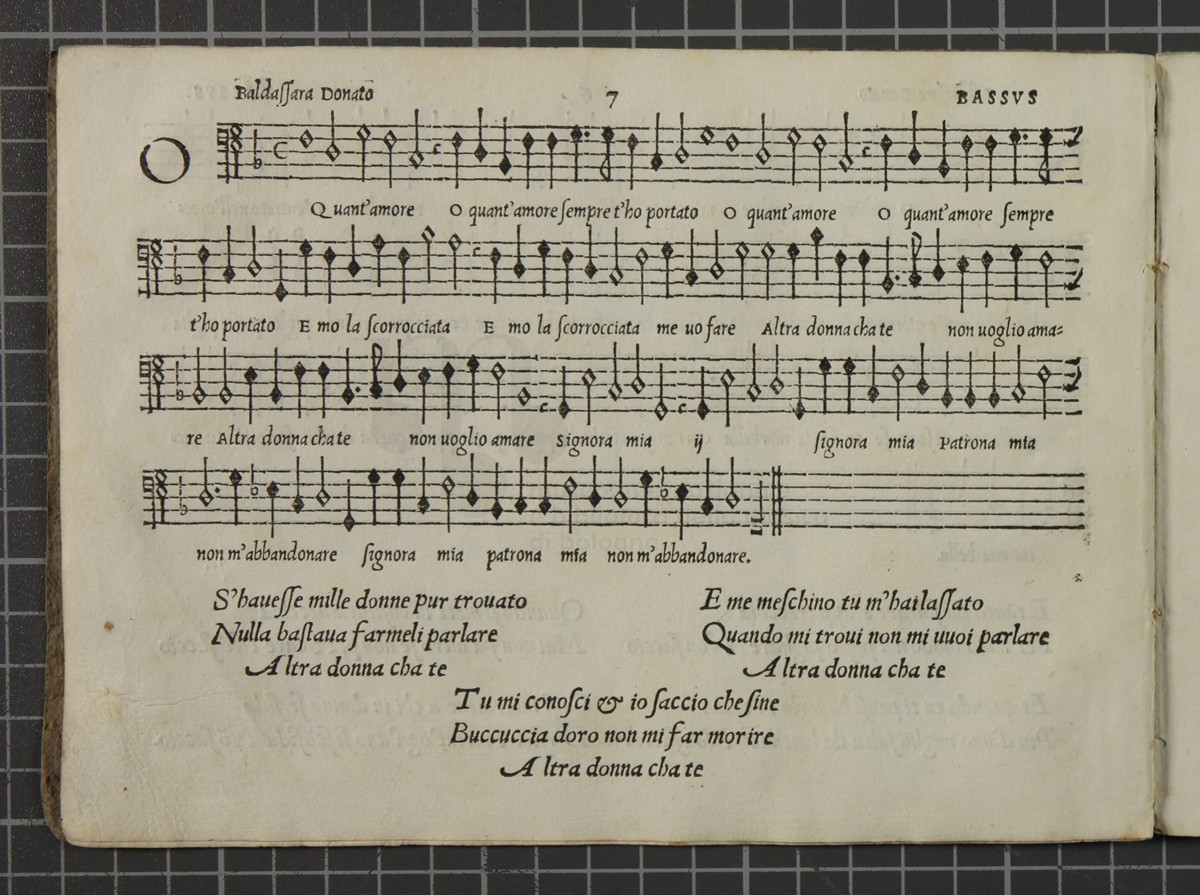 Baldaſſara Donato 7 BASSVS
O
Quant'amore O quant'amore ſempre t'ho portato O quant'amore O quant'amore ſempre
t'ho portato E mo la ſcorrocciata E mo la ſcorrocciata me uo fare Altra donna cha te non uoglio ama=
re Altra donna cha te non uoglio amare Signora mia ij ſignora mia Patrona mia
non m'abbandonare ſignora mia patrona mia non m'abbandonare.
S'haueſſe mille donne pur trouato
Nulla baſtaua farmeli parlare
Altra donna cha te
E me meſchino tu m'hai laſſato
Quando mi troui non mi uuoi parlare
Altra donna cha te
Tu mi conoſci & io ſaccio che ſine
Buccuccia doro non mi far morire
Altra donna cha te